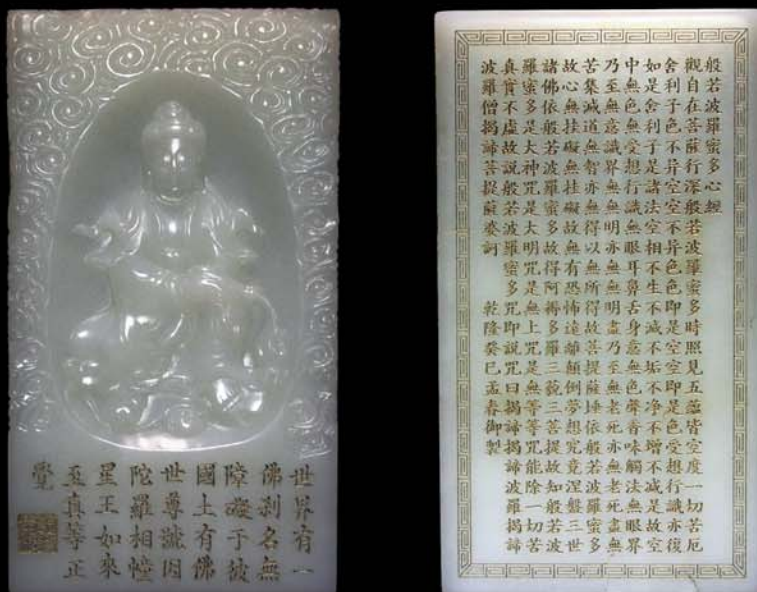 世界有一
佛刹名無
障礙于彼
國土有佛
世尊號因
陀羅相幢
星王如來
至真等正
覺
般若波羅蜜多心經
觀自在菩薩行深般若波羅蜜多時照見五蘊皆空度一切苦厄
舍利子色不异空空不异色色即是空空即是色受想行識亦復
如是舍利子是諸法空相不生不滅不垢不净不增不減是故空
中無色無受想行識無眼耳鼻舌身意無色聲香味觸法無眼界
乃至無意識界無無明亦無無明盡乃至無老死亦無老死盡無
苦集滅道無智亦無得以無所得故菩提薩埵依般若波羅蜜多
故心無挂礙無挂礙故無有恐怖遠離顛倒夢想究竟涅盤三世
諸佛依般若波羅蜜多故得阿耨多羅三藐三菩提故知般若波
羅蜜多是大神咒是大明咒是無上咒是無等等咒能除一切苦
真實不虛故說般若波羅蜜多咒即說咒曰揭諦揭諦波羅揭諦
波羅僧揭諦菩提薩婆訶 乾隆癸巳孟春御製